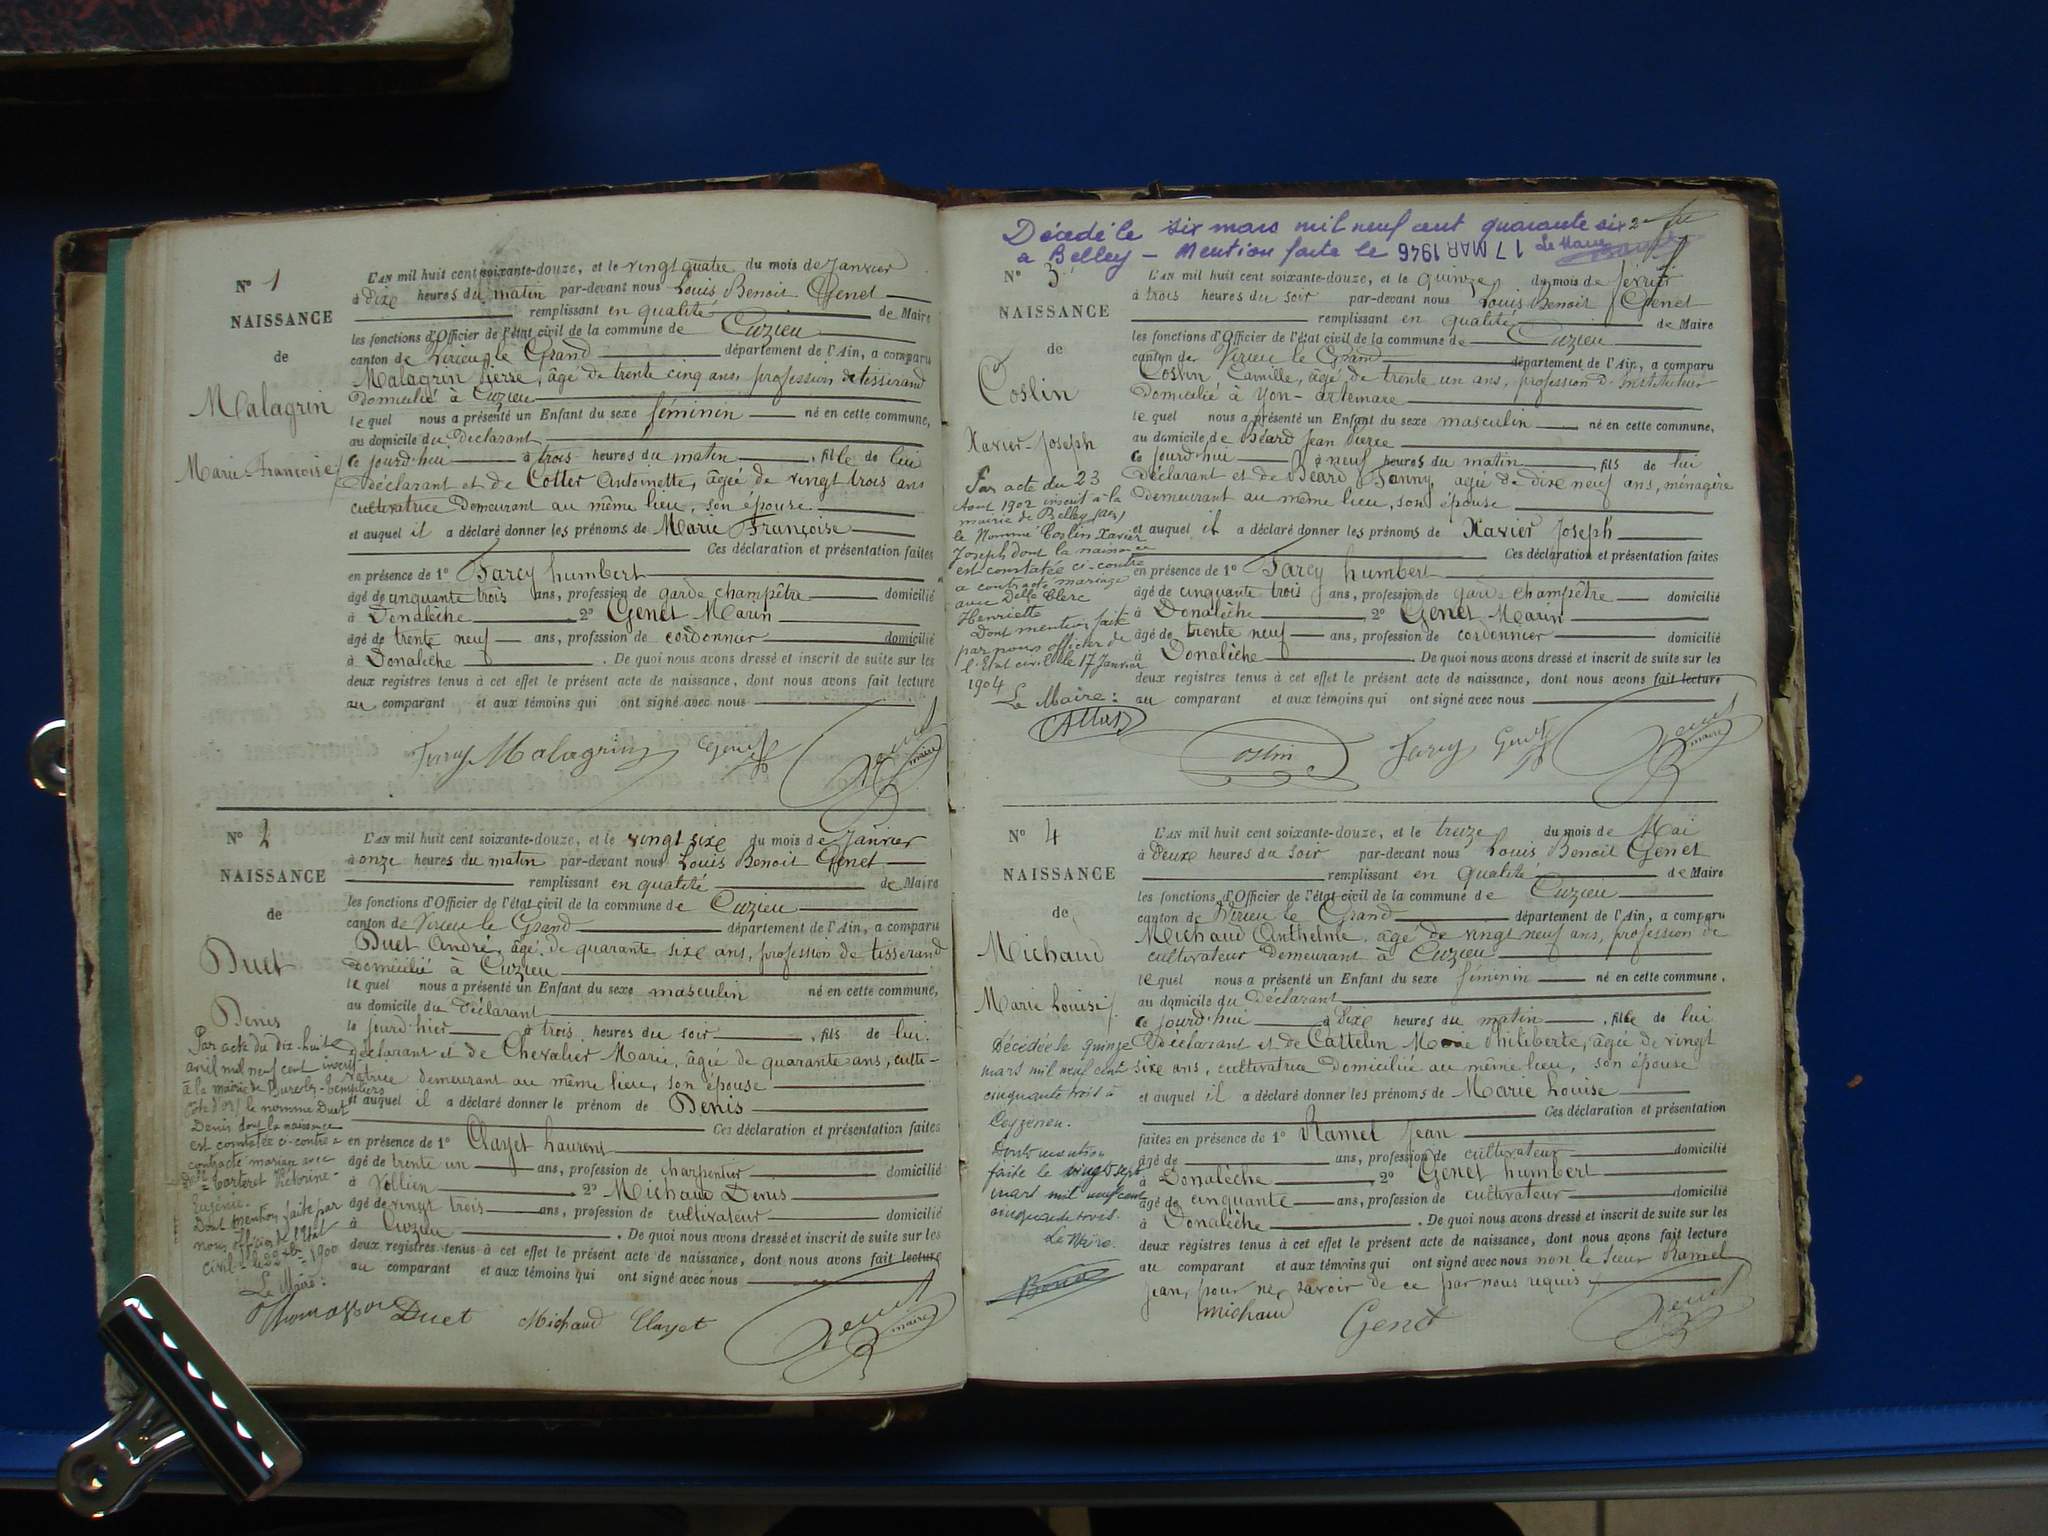 N° 1
NAISSANCE
de
Malagrin
Marie-Françoise
L'AN mil huit cent soixante-douze, et le vingt quatre du mois de Janvier
à dixe heures du matin par-devant nous Louis Benoit Genet
remplissant en qualité de Maire
les fonctions d'Officier de l'état civil de la commune de Cuzieu
canton de Virieu le Grand département de l'Ain, a comparu
Malagrin Pierre, âgé de trente cinq ans, profession de tisserand
domicilié à Cuzieu
lequel nous a présenté un Enfant du sexe féminin né en cette commune,
au domicile du Déclarant
Ce jourd'hui à trois heures du matin, fille de lui
Déclarant et de Cotter Antoinette, âgée de vingt trois ans
cultivatrice demeurant au même lieu, son épouse
et auquel il a déclaré donner les prénoms de Marie Françoise
Ces déclaration et présentation faites
en présence de 1° Farcy humbert
âgé de cinquante trois ans, profession de garde champêtre domicilié
à Donalèche 2° Genet Marin
âgé de trente neuf ans, profession de cordonnier domicilié
à Donalèche. De quoi nous avons dressé et inscrit de suite sur les
deux registres tenus à cet effet le présent acte de naissance, dont nous avons fait lecture
au comparant et aux témoins qui ont signé avec nous
Farcy Malagrin Genet Genet maire
N° 2
NAISSANCE
de
Duet
Denis
Par acte du dix-huit
avril mil neuf cent inscrit
à la mairie de Bure-les-Templiers
Côte d'or, le nommé Duet
Denis dont la naissance
est constatée ci-contre a
contracté mariage avec
Delle Corteret Victorine-
Eugénie.
Dont mention faite par
nous officier de l'Etat
civil le 22 1900
Le Maire:
Thomasson
L'AN mil huit cent soixante-douze, et le vingt sixe du mois de Janvier
à onze heures du matin par-devant nous Louis Benoit Genet
remplissant en qualité de Maire
les fonctions d'Officier de l'état civil de la commune de Cuzieu
canton de Virieu le Grand département de l'Ain, a comparu
Duet André, âgé de quarante sixe ans, profession de tisserand
domicilié à Cuzieu
lequel nous a présenté un Enfant du sexe masculin né en cette commune,
au domicile du Déclarant
le jourd'hier à trois heures du soir, fils de lui
Déclarant et de Chevalier Marie, âgée de quarante ans, culti-
vatrice demeurant au même lieu, son épouse
et auquel il a déclaré donner le prénom de Denis
Ces déclaration et présentation faites
en présence de 1° Clayet Laurent
âgé de trente un ans, profession de charpentier domicilié
à Vollien 2° Michaud Denis
âgé de vingt trois ans, profession de cultivateur domicilié
à Cuzieu. De quoi nous avons dressé et inscrit de suite sur les
deux registres tenus à cet effet le présent acte de naissance, dont nous avons fait lecture
au comparant et aux témoins qui ont signé avec nous
Duet Michaud Clayet Genet maire
Décédé le six mars mil neuf cent quarante six
à Belley - Mention faite le 17 MAR 1946 Le Maire
2
N° 3
NAISSANCE
de
Coslin
Xavier-Joseph
Par acte du 23
Aout 1902 inscrit à la
mairie de Belley (Ain)
le Nommé Coslin Xavier
Joseph dont la naissance
est constatée ci-contre
a contracté mariage
avec Delle Clerc
Henriette
Dont mention faite
par nous officier de
l'Etat civil le 17 Janvier
1904
Le Maire:
L'AN mil huit cent soixante-douze, et le quinze du mois de février
à trois heures du soir par-devant nous Louis Benoit Genet
remplissant en qualité de Maire
les fonctions d'Officier de l'état civil de la commune de Cuzieu
canton de Virieu le Grand département de l'Ain, a comparu
Coslin Camille, âgé de trente un ans, profession d'Instituteur
Domicilié à Yon-artemare
lequel nous a présenté un Enfant du sexe masculin né en cette commune,
au domicile de Béard Jean Pierre
Ce jourd'hui à neuf heures du matin, fils de lui
Déclarant et de Béard Fanny, agée de dixe neuf ans, ménagère
demeurant au même lieu, son épouse
et auquel il a déclaré donner les prénoms de Xavier Joseph
Ces déclaration et présentation faites
en présence de 1° Farcy humbert
âgé de cinquante trois ans, profession de garde champêtre domicilié
à Donalèche 2° Genet Marin
âgé de trente neuf ans, profession de cordonnier domicilié
à Donalèche De quoi nous avons dressé et inscrit de suite sur les
deux registres tenus à cet effet le présent acte de naissance, dont nous avons fait lecture
au comparant et aux témoins qui ont signé avec nous
Coslin Farcy Genet Genet maire
N° 4
NAISSANCE
de
Michaud
Marie Louise
Décédée le quinze
mars mil neuf cent
cinquante trois à
Ceyzerieu.
Dont mention
faite le vingt sept
mars mil neuf cent
cinquante trois.
Le Maire.
L'AN mil huit cent soixante-douze, et le treize du mois de Mai
à deuxe heures du soir par-devant nous Louis Benoit Genet
remplissant en qualité de Maire
les fonctions d'Officier de l'état civil de la commune de Cuzieu
canton de Virieu le Grand département de l'Ain, a comparu
Michaud Anthelme, âgé de vingt neuf ans, profession de
cultivateur demeurant à Cuzieu
lequel nous a présenté un Enfant du sexe féminin né en cette commune,
au domicile du Déclarant
Ce jourd'hui à dixe heures du matin, fille de lui
Déclarant et de Cattelin Marie Philiberte, âgée de vingt
sixe ans, cultivatrice domiciliée au même lieu, son épouse
et auquel il a déclaré donner les prénoms de Marie Louise
Ces déclaration et présentation
faites en présence de 1° Ramel Jean
âgé de ans, profession de cultivateur domicilié
à Donalèche 2° Genet humbert
âgé de cinquante ans, profession de cultivateur domicilié
à Donalèche. De quoi nous avons dressé et inscrit de suite sur les
deux registres tenus à cet effet le présent acte de naissance, dont nous avons fait lecture
au comparant et aux témoins qui ont signé avec nous non le Sieur Ramel
Jean, pour ne savoir de ce par nous requis
Michaud Genet Genet